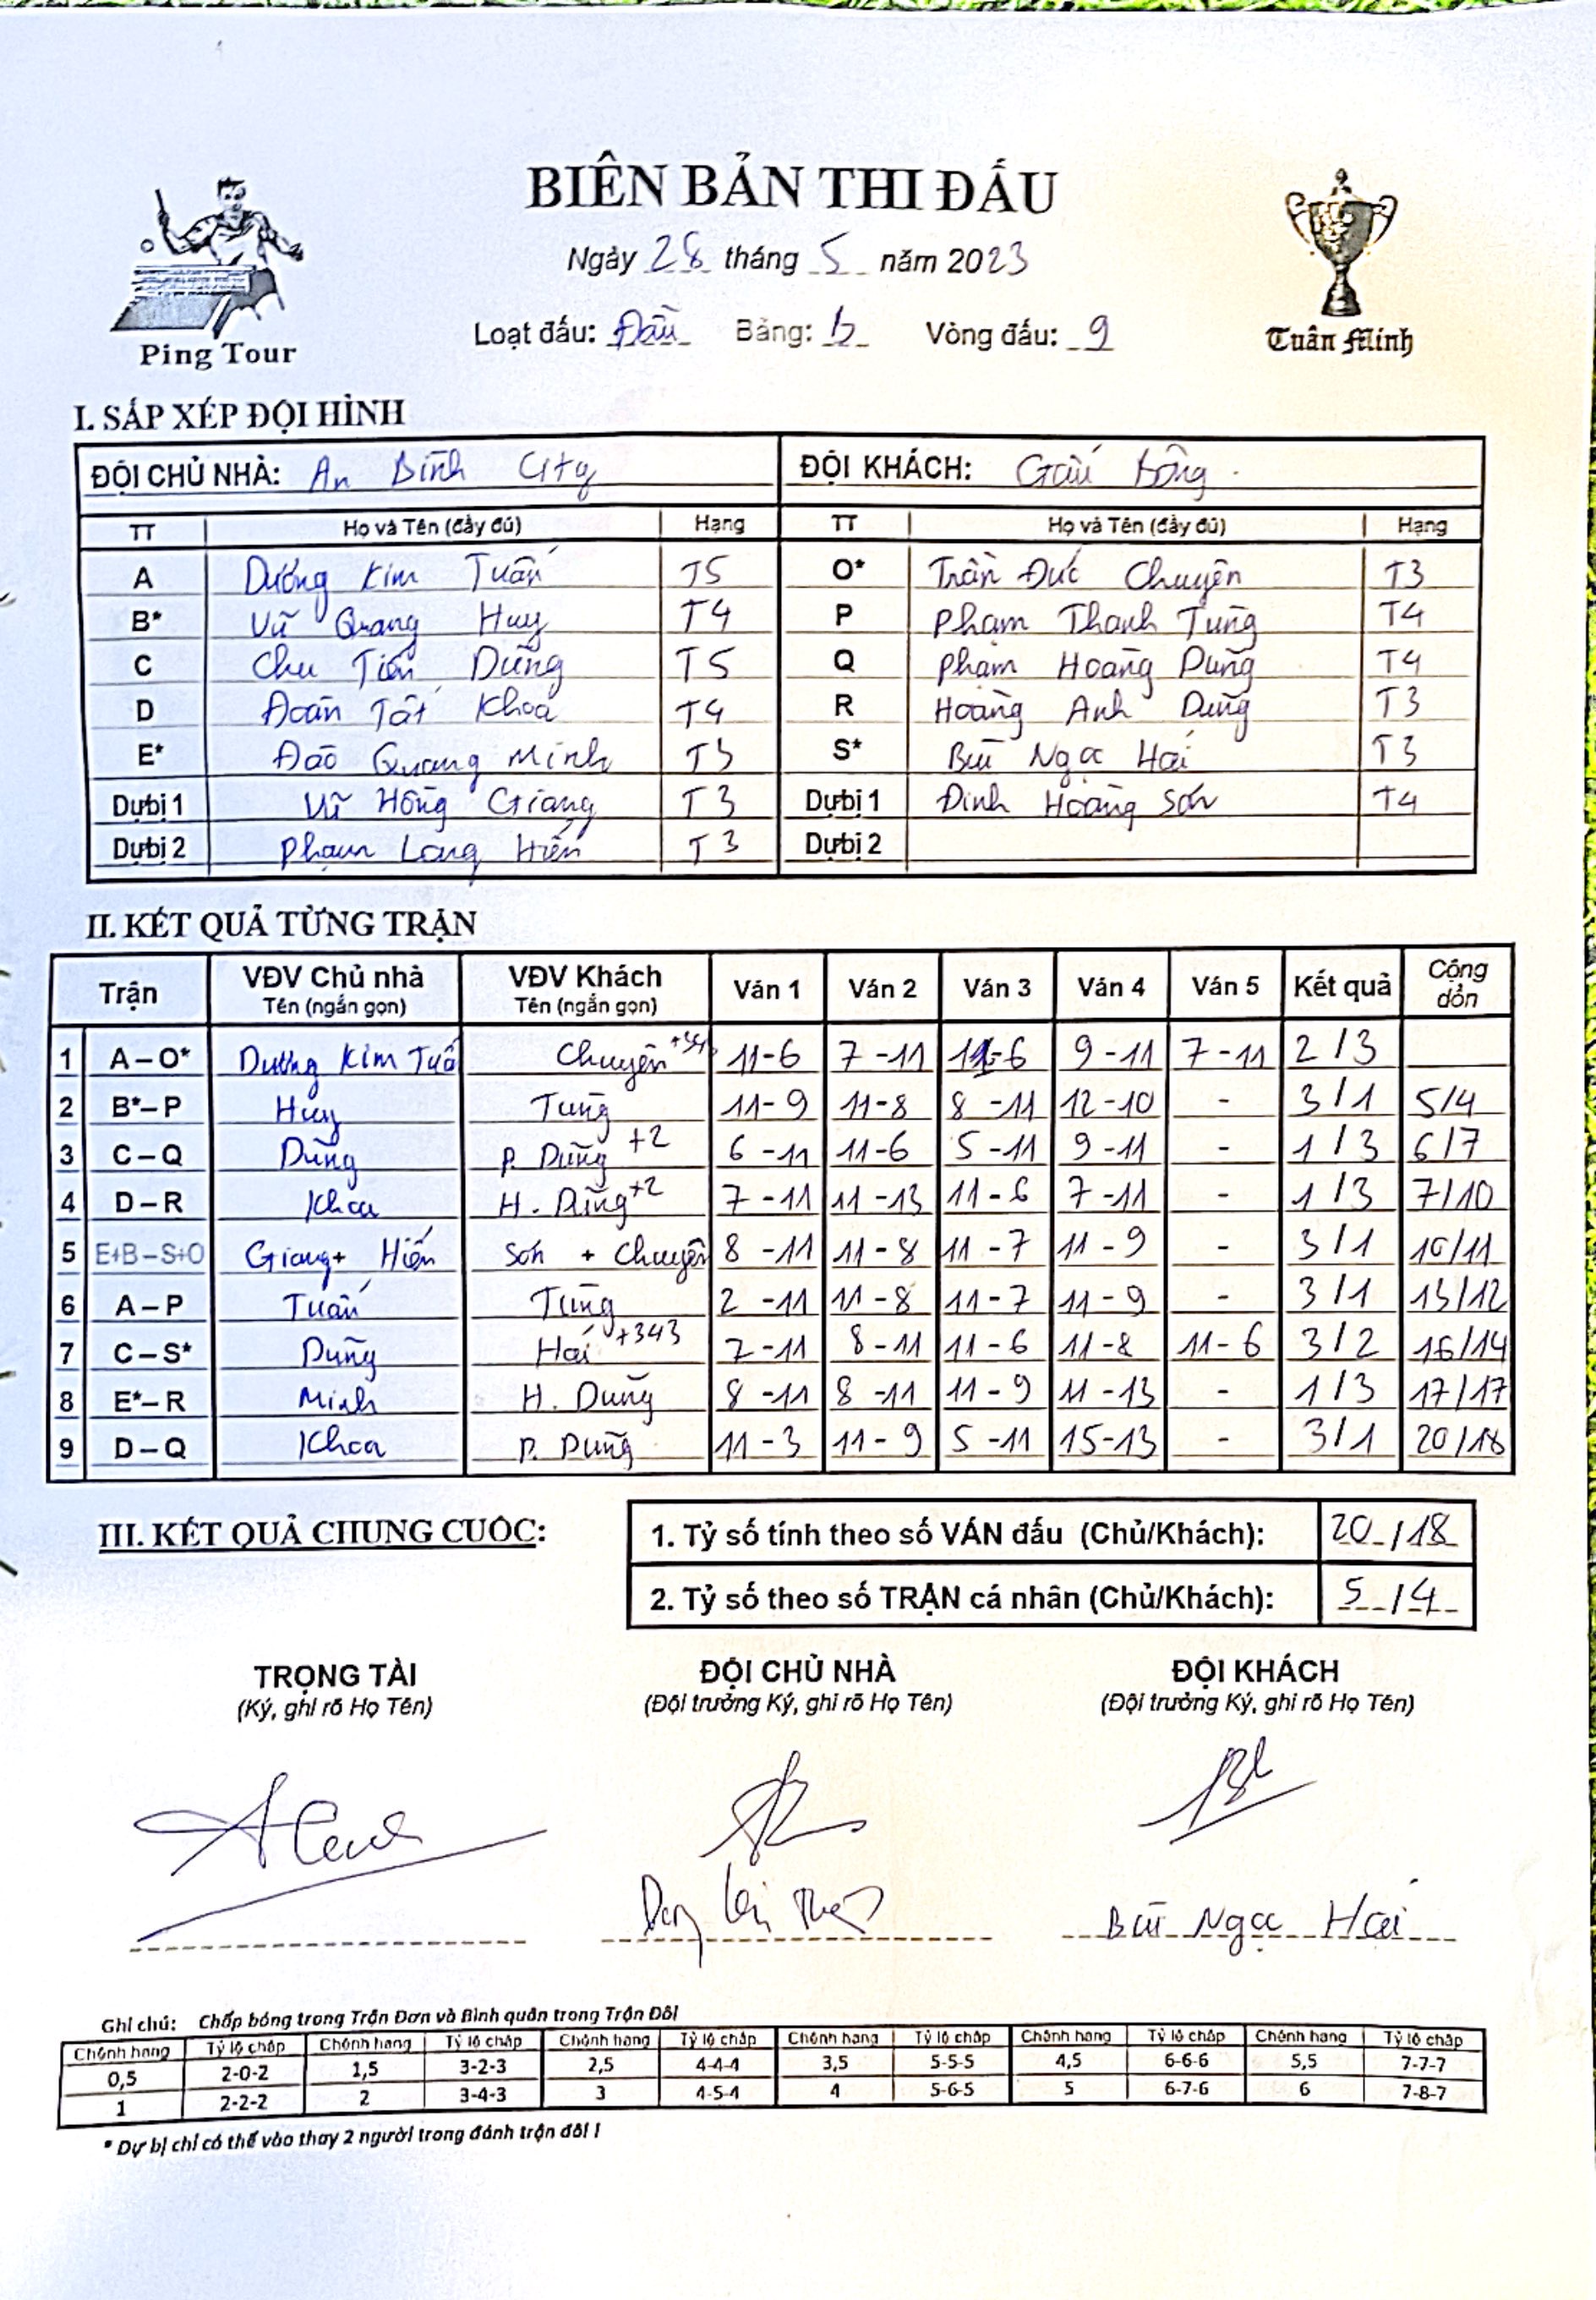 BIÊN BẢN THI ĐẤU
Ngày 28 tháng 5 năm 2023
Loạt đấu: Đầu Bảng: b Vòng đấu: 9
Ping Tour
Tuấn Minh
I. SẮP XẾP ĐỘI HÌNH
ĐỘI CHỦ NHÀ: An Bình City ĐỘI KHÁCH: Gấu Bông
TT Họ và Tên (đầy đủ) Hạng TT Họ và Tên (đầy đủ) Hạng
A Dương Kim Tuấn T5 O* Trần Đức Chuyên T3
B* Vũ Quang Huy T4 P Phạm Thanh Tùng T4
C Chu Tiến Dũng T5 Q Phạm Hoàng Dũng T4
D Đoàn Tất Khoa T4 R Hoàng Anh Dũng T3
E* Đào Quang Minh S* Bùi Ngọc Hải T3
Dự bị 1 Vũ Hồng Giang T3 Dự bị 1 Đinh Hoàng Sơn T4
Dự bị 2 Phạm Long Hiến T3 Dự bị 2
II. KẾT QUẢ TỪNG TRẬN
Trận VĐV Chủ nhà Tên (ngắn gọn) VĐV Khách Tên (ngắn gọn) Ván 1 Ván 2 Ván 3 Ván 4 Ván 5 Kết quả Cộng dồn
1 A – O* Dương Kim Tuấ Chuyên 11-6 7-11 11-6 9-11 7-11 2/3
2 B*– P Huy Tùng 11-9 11-8 8-11 12-10 - 3/1 5/4
3 C – Q Dũng P. Dũng +2 6-11 11-6 5-11 9-11 - 1/3 6/7
4 D – R Khoa H. Dũng +2 7-11 11-13 11-6 7-11 - 1/3 7/10
5 E+B – S+O Giang+ Hiến Sơn + Chuyên 8-11 11-8 11-7 11-9 - 3/1 10/11
6 A – P Tuấn Tùng 2-11 11-8 11-7 11-9 - 3/1 13/12
7 C – S* Dũng Hải +343 7-11 8-11 11-6 11-8 11-6 3/2 16/14
8 E*– R Minh H. Dũng 8-11 8-11 11-9 11-13 - 1/3 17/17
9 D – Q Khoa P. Dũng 11-3 11-9 5-11 15-13 - 3/1 20/18
III. KẾT QUẢ CHUNG CUỘC:
1. Tỷ số tính theo số VÁN đấu (Chủ/Khách): 20/18
2. Tỷ số theo số TRẬN cá nhân (Chủ/Khách): 5/4
TRỌNG TÀI ĐỘI CHỦ NHÀ ĐỘI KHÁCH
(Ký, ghi rõ Họ Tên) (Đội trưởng Ký, ghi rõ Họ Tên) (Đội trưởng Ký, ghi rõ Họ Tên)
Bùi Ngọc Hải
Ghi chú: Chấp bóng trong Trận Đơn và Bình quân trong Trận Đôi
Chênh hạng Tỷ lệ chấp Chênh hạng Tỷ lệ chấp Chênh hạng Tỷ lệ chấp Chênh hạng Tỷ lệ chấp Chênh hạng Tỷ lệ chấp Chênh hạng Tỷ lệ chấp
0,5 2-0-2 1,5 3-2-3 2,5 4-4-4 3,5 5-5-5 4,5 6-6-6 5,5 7-7-7
1 2-2-2 2 3-4-3 3 4-5-4 4 5-6-5 5 6-7-6 6 7-8-7
* Dự bị chỉ có thể vào thay 2 người trong đánh trận đôi !